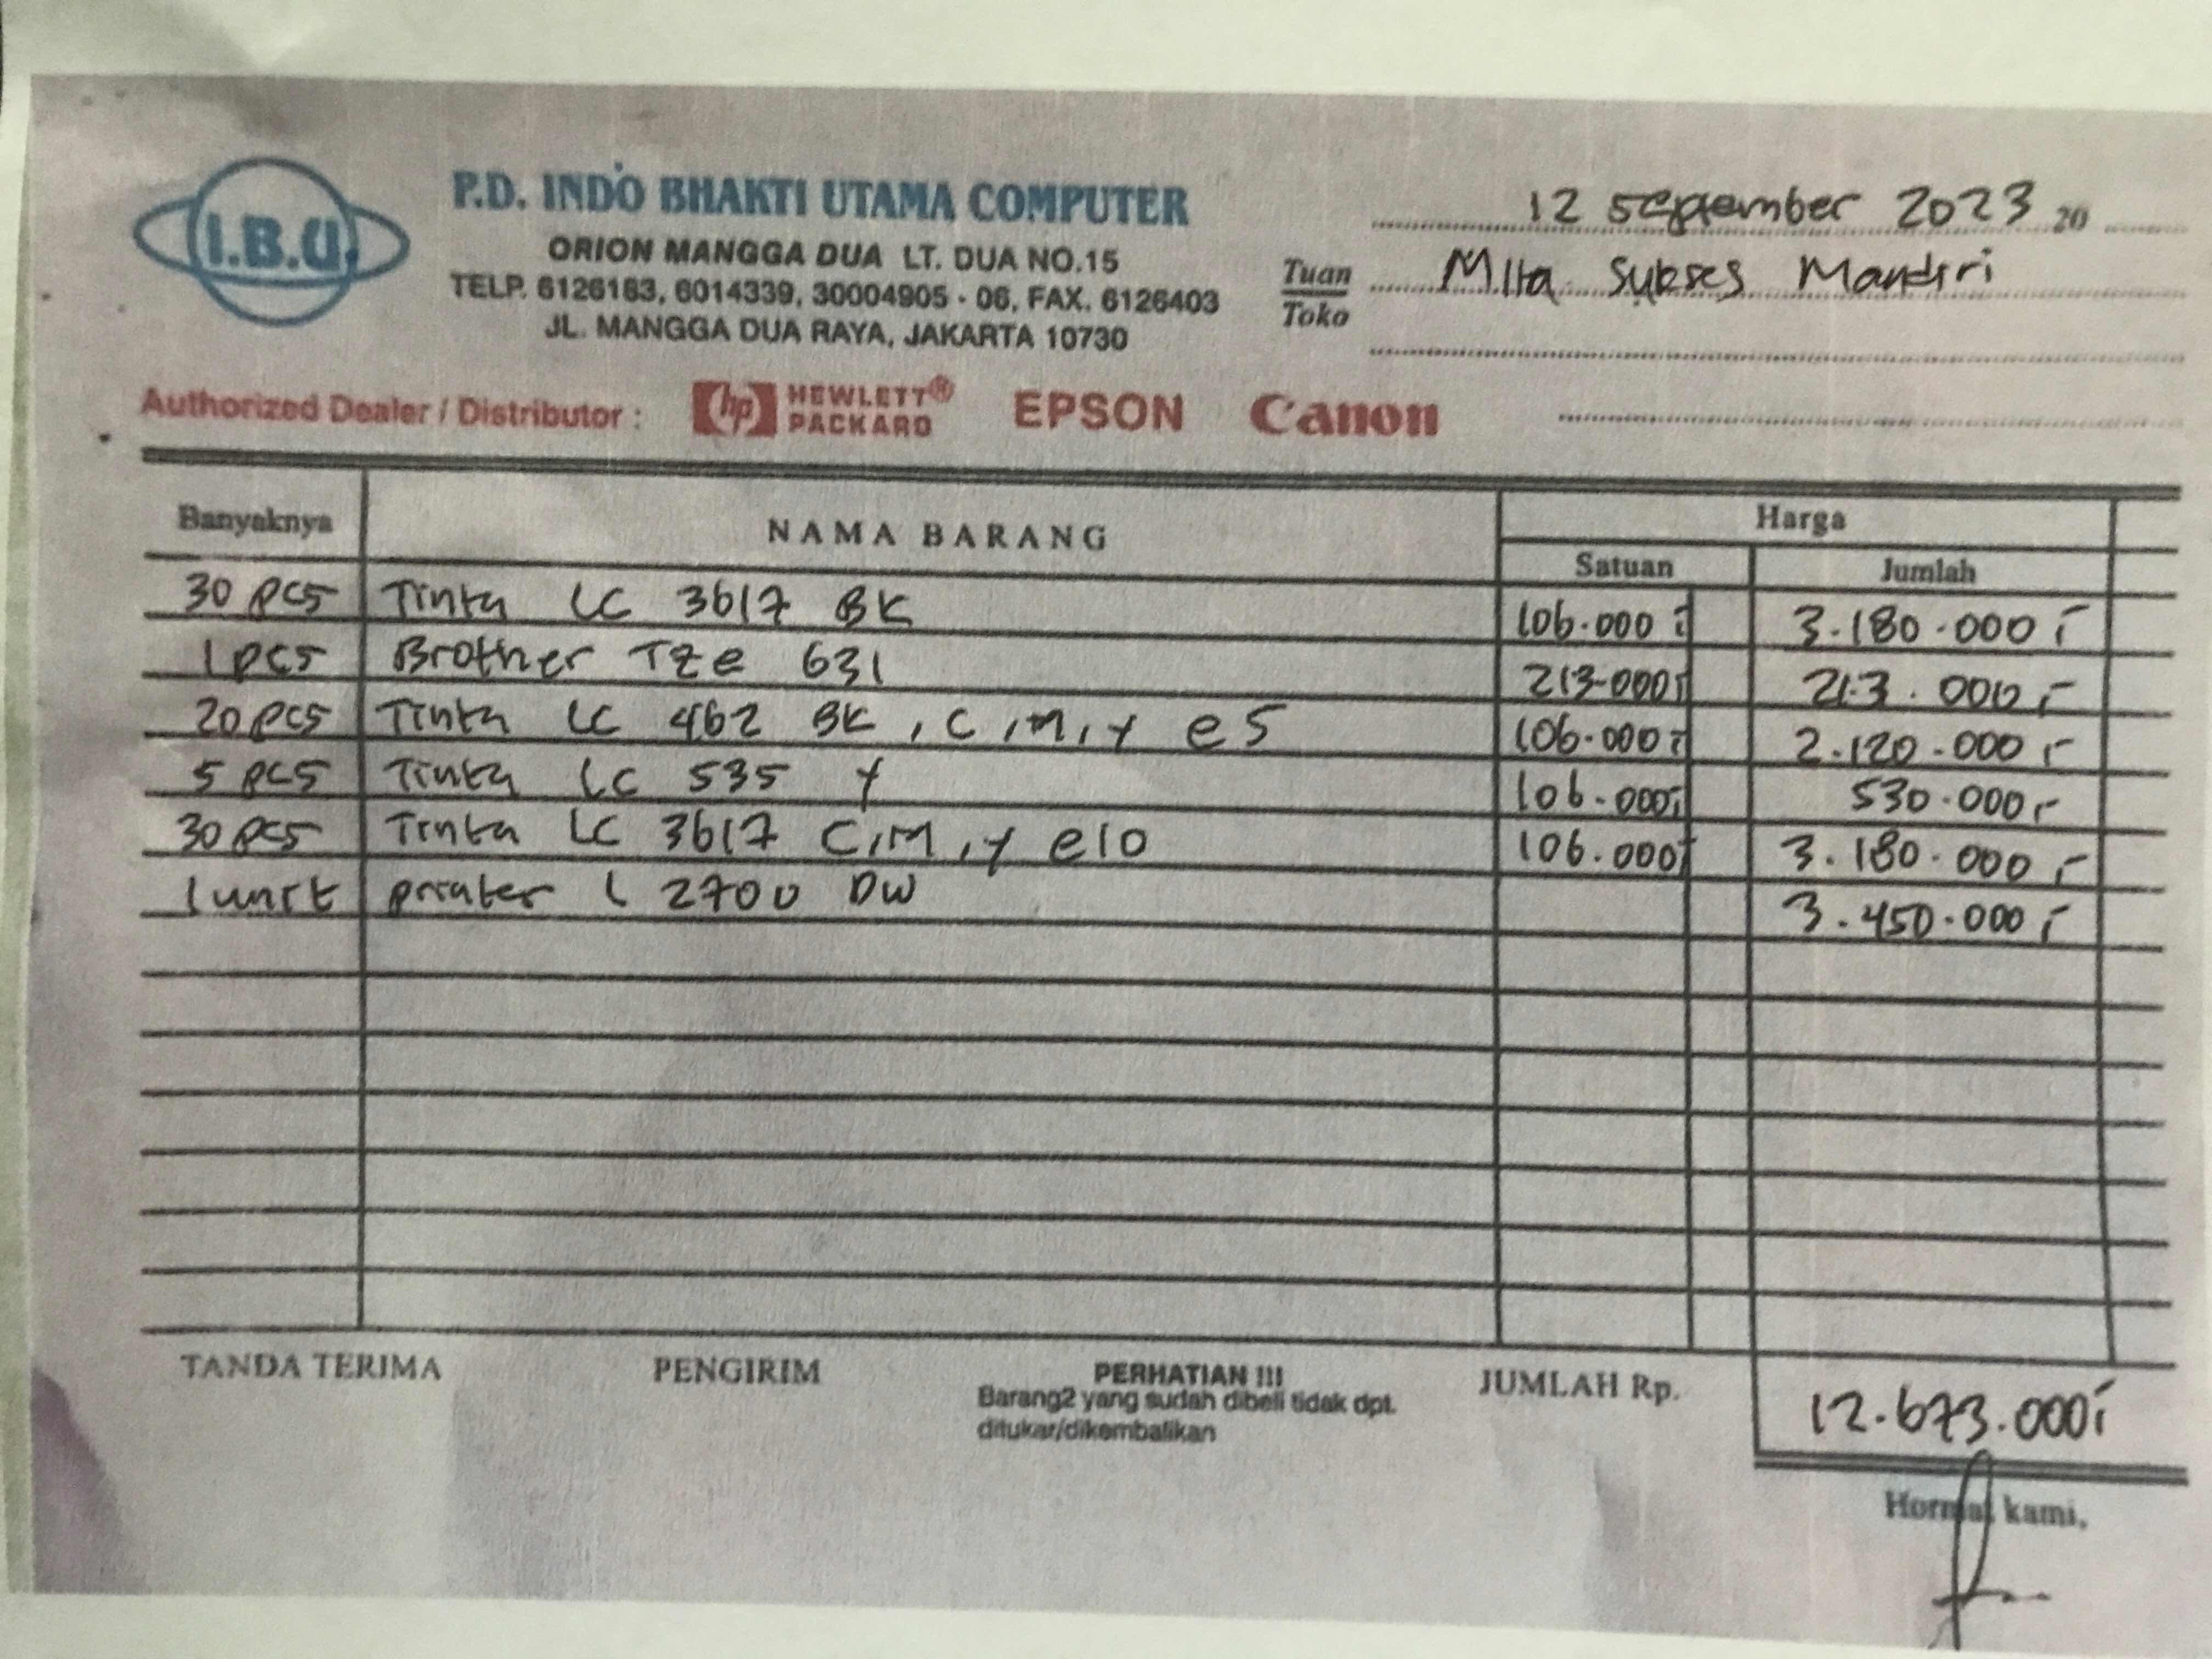 I.B.U.
P.D. INDO BHAKTI UTAMA COMPUTER
ORION MANGGA DUA LT. DUA NO.15
TELP. 6126183, 6014339, 30004905 - 06, FAX. 6126403
JL. MANGGA DUA RAYA, JAKARTA 10730
12 September 2023 20
Tuan
Toko
Mita Sukses Mandiri
Authorized Dealer / Distributor : hp HEWLETT® PACKARD EPSON Canon
Banyaknya NAMA BARANG Harga
Satuan Jumlah
30 pcs Tinta LC 3617 BK 106.000,- 3.180.000,-
1 pcs Brother Tze 631 213.000,- 213.000,-
20 pcs Tinta LC 462 BK, C, M, Y @ 5 106.000,- 2.120.000,-
5 pcs Tinta LC 535 Y 106.000,- 530.000,-
30 pcs Tinta LC 3617 C, M, Y @ 10 106.000,- 3.180.000,-
1 unit printer L 2700 DW 3.450.000,-
TANDA TERIMA PENGIRIM PERHATIAN !!! JUMLAH Rp. 12.673.000,-
Barang2 yang sudah dibeli tidak dpt.
ditukar/dikembalikan
Hormat kami,